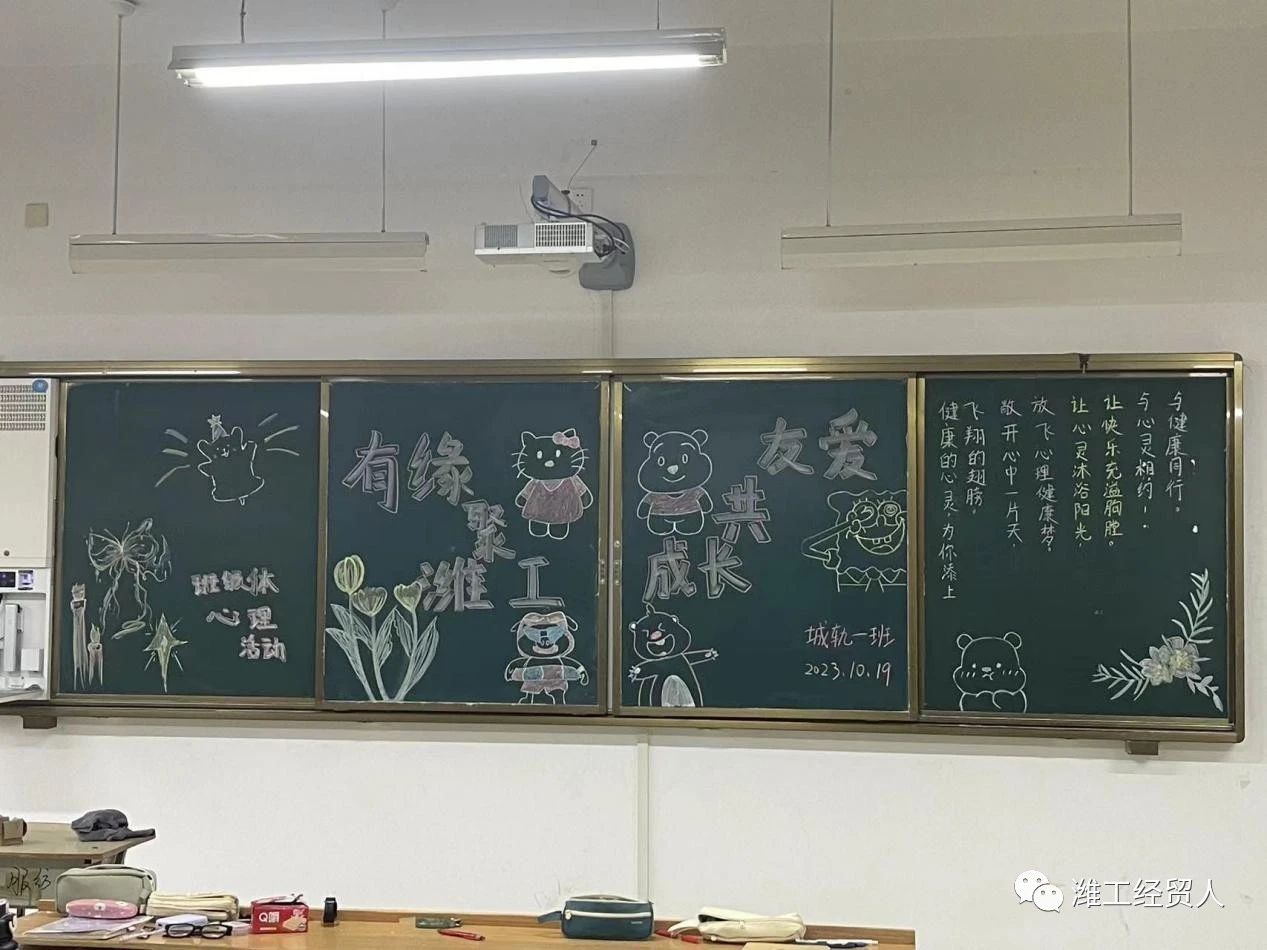 班级体
心理
活动
有缘
聚
潍工
友爱
共
成长
城轨一班
2023.10.19
与健康同行。
与心灵相约！
让快乐充溢胸膛。
让心灵沐浴阳光，
放飞心理健康梦。
敞开心中一片天，
飞翔的翅膀。
健康的心灵，为你添上
服纺
Q
潍工经贸人